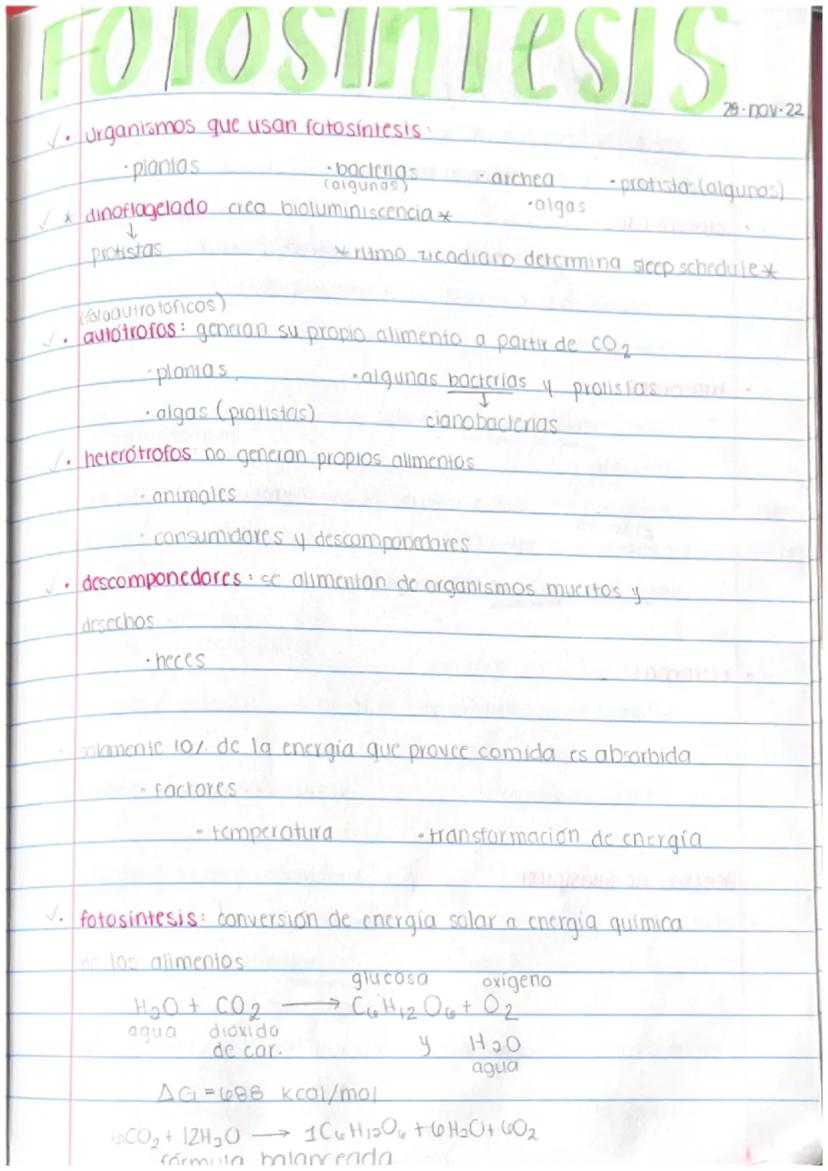 FOTOSINTESIS
29-nov-22
• organismos que usan fotosíntesis:
• plantas • bacterias • archea • protista (algunos)
(algunas) • algas
* dinoflagelado crea bioluminiscencia *
↓
protistas * ritmo zicadiano determina sleep schedule *
• autótrofos: generan su propio alimento a partir de CO2
• plantas • algunas bacterias y protistas
↓
• algas (protistas) cianobacterias
• heterótrofos no generan propios alimentos
• animales
• consumidores y descomponedores
• descomponedores: se alimentan de organismos muertos y
desechos
• heces
• solamente 10% de la energía que provee comida es absorbida
• factores
• temperatura • transformación de energía
• fotosíntesis: conversión de energía solar a energía química
de los alimentos
glucosa oxígeno
H2O + CO2 → C6H12O6 + O2
agua dióxido y H2O
de car. agua
ΔG = 688 kcal/mol
6CO2 + 12H2O → 1C6H12O6 + 6H2O + 6O2
fórmula balanceada